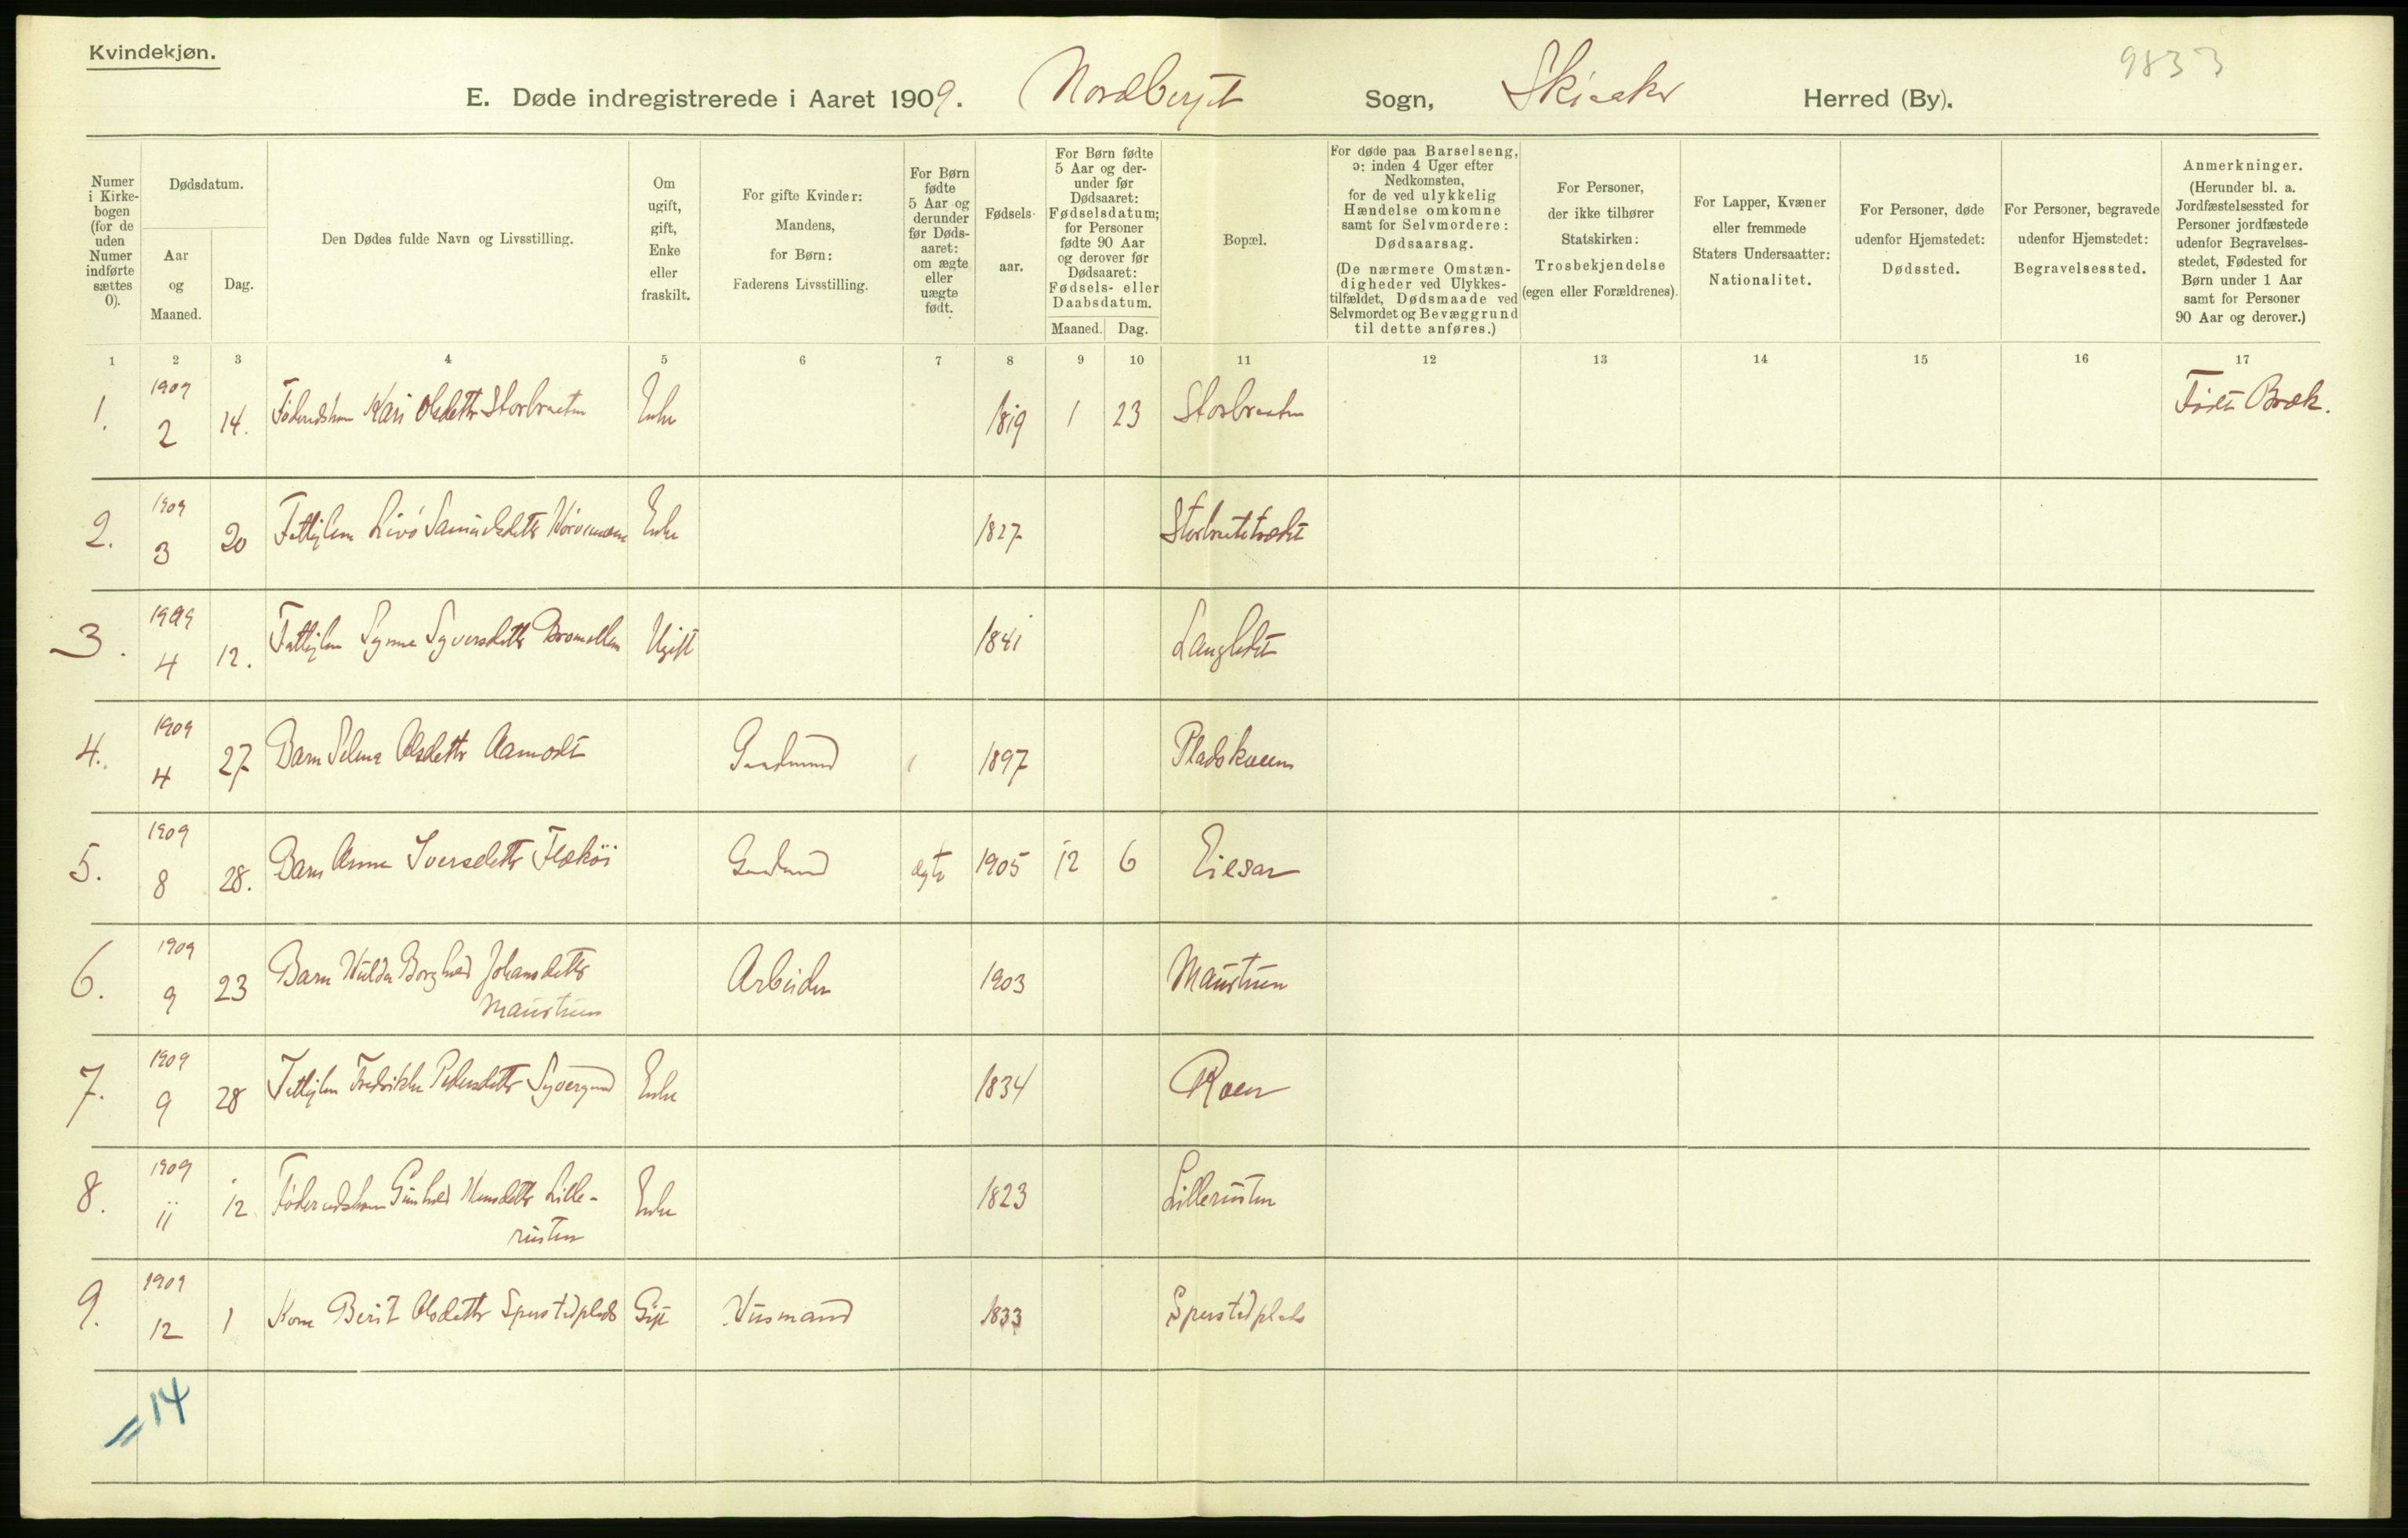 Kvindekjøn.
9833
E. Døde indregistrerede i Aaret 1909. Nordberget Sogn, Skiaker Herred (By).
Numer i Kirkebogen (for de uden Numer indførte sættes 0).
Dødsdatum.
Aar og Maaned.
Dag.
Den Dødes fulde Navn og Livsstilling.
Om ugift, gift, Enke eller fraskilt.
For gifte Kvinder: Mandens, for Børn: Faderens Livsstilling.
For Børn fødte 5 Aar og derunder før Dødsaaret: om ægte eller uægte født.
Fødselsaar.
For Børn fødte 5 Aar og derunder før Dødsaaret: Fødselsdatum; for Personer fødte 90 Aar og derover før Dødsaaret: Fødsels- eller Daabsdatum.
Maaned. Dag.
Bopæl.
For døde paa Barselseng, ɔ: inden 4 Uger efter Nedkomsten, for de ved ulykkelig Hændelse omkomne samt for Selvmordere: Dødsaarsag.
(De nærmere Omstændigheder ved Ulykkestilfældet, Dødsmaade ved Selvmordet og Bevæggrund til dette anføres.)
For Personer, der ikke tilhører Statskirken: Trosbekjendelse (egen eller Forældrenes).
For Lapper, Kvæner eller fremmede Staters Undersaatter: Nationalitet.
For Personer, døde udenfor Hjemstedet: Dødssted.
For Personer, begravede udenfor Hjemstedet: Begravelsessted.
Anmerkninger.
(Herunder bl. a. Jordfæstelsessted for Personer jordfæstede udenfor Begravelsesstedet, Fødested for Børn under 1 Aar samt for Personer 90 Aar og derover.)
1 2 3 4 5 6 7 8 9 10 11 12 13 14 15 16 17
1. 1909 2 14. Kari Olsdatter Storbraaten Enke 1819 1 23 Storbraaten Født Bræk.
2. 1909 3 20 Fattiglem Livø Samuelsdatter Enke 1827
3. 1909 4 12. Fattiglem Synne Syversdatter Ugift 1841
4. 1909 4 27 Barn Selma Olsdatter Aamodt Gaardmand 1897
5. 1909 8 28. Barn Anna Iversdatter Flækøi Gaardmand ægte 1905 12 6
6. 1909 9 23 Barn Hulda Borghild Johansdatter
Maurtuen Arbeider 1903 Maurtuen
7. 1909 9 28 Fattiglem Fredrikke Pedersdatter Enke 1834
8. 1909 11 12 Gunhild Lille-
rusten Enke 1823 Lillerusten
9. 1909 12 1 Kone Berit Olsdatter Sperstadplads Gift Husmand 1833 Sperstadplads
14